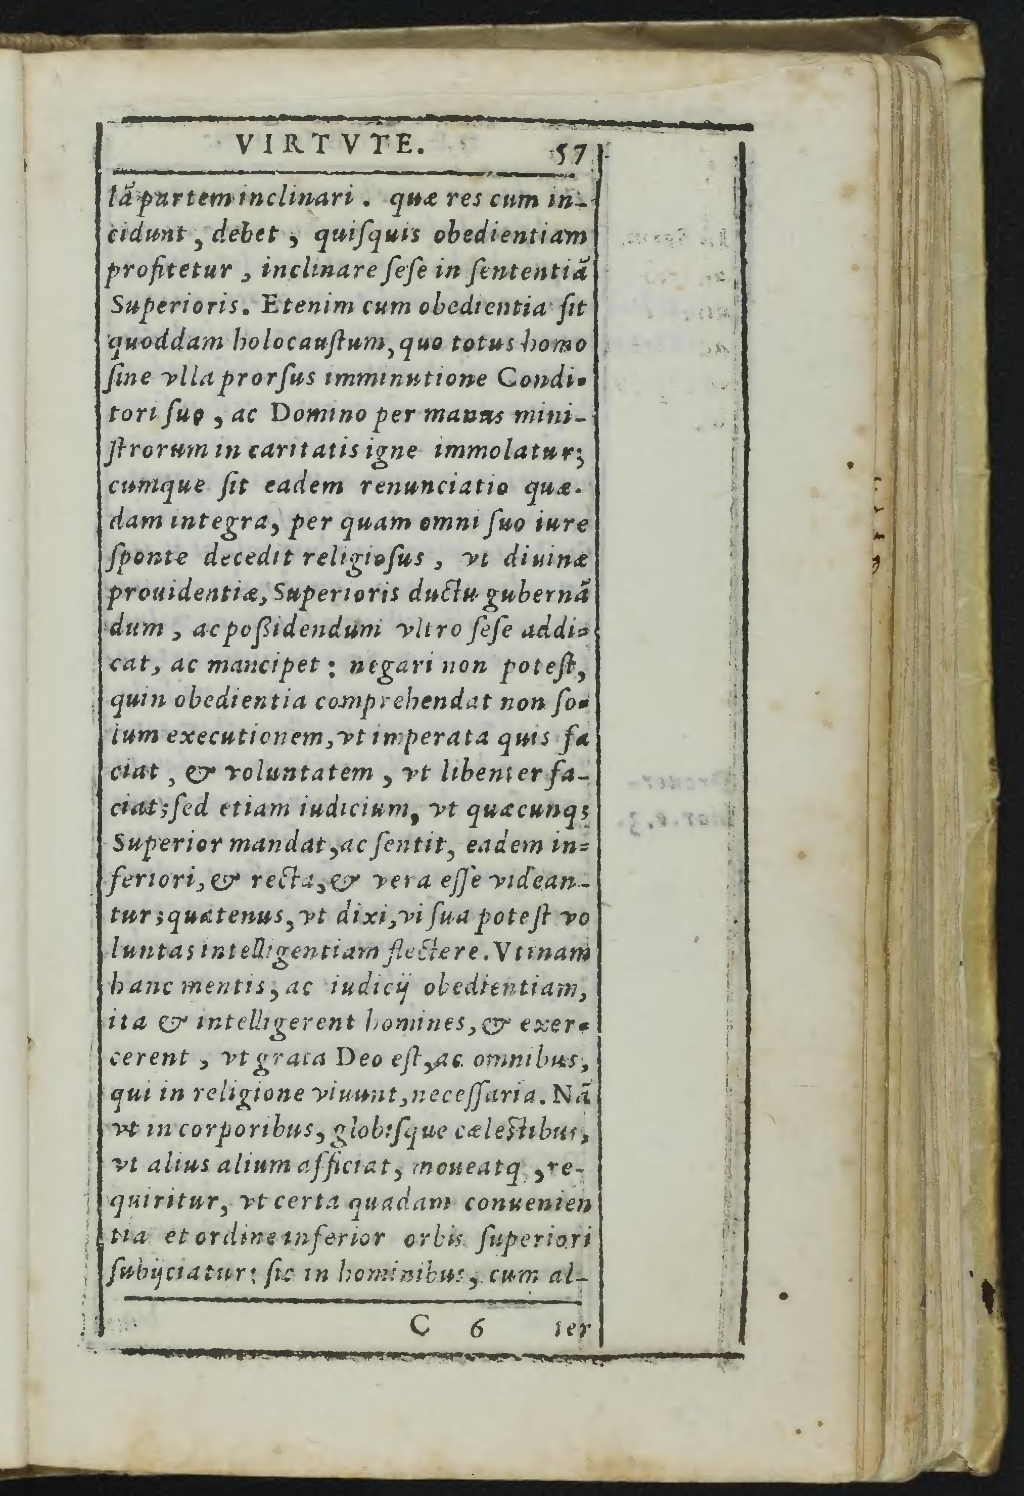 VIRTVTE. 57
lã partem inclinari. quæ res cum in-
cidunt, debet, quiſquis obedientiam
profitetur, inclinare ſeſe in ſententiã
Superioris. Etenim cum obedientia ſit
quoddam holocauſtum, quo totus homo
ſine vlla prorſus imminutione Condi-
tori ſuo, ac Domino per manus mini-
ſtrorum in caritatis igne immolatur;
cumque ſit eadem renunciatio quæ-
dam integra, per quam omni ſuo iure
ſponte decedit religioſus, vt diuinæ
prouidentiæ, Superioris ductu gubernã
dum, ac poßidendum vltro ſeſe addi-
cat, ac mancipet: negari non poteſt,
quin obedientia comprehendat non ſo-
lum executionem, vt imperata quis fa
ciat, & voluntatem, vt libenter fa-
ciat; ſed etiam iudicium, vt quæcunq;
Superior mandat, ac ſentit, eadem in-
feriori, & recta, & vera eſſe videan-
tur; quatenus, vt dixi, vi ſua poteſt vo
luntas intelligentiam flectere. Vtinam
hanc mentis, ac iudicij obedientiam,
ita & intelligerent homines, & exer-
cerent, vt grata Deo eſt, ac omnibus,
qui in religione viuunt, neceſſaria. Nã
vt in corporibus, globiſque cæleſtibus,
vt alius alium afficiat, moueatq, re-
quiritur, vt certa quadam conuenien
tia et ordine inferior orbis ſuperiori
ſubijciatur: ſic in hominibus, cum al-
C 6 ter